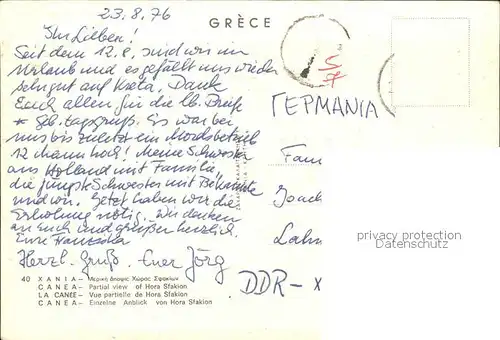 23.8.76
GRÈCE
Ihr Lieben!
Seit dem 12.8. sind wir im
Urlaub und es gefällt uns wieder
sehr gut auf Kreta. Dank
Euch allen für die lb. Briefe
+ Geb.tagsgrüße. Es war bei
uns bis zuletzt ein Mordsbetrieb
12 Mann hoch! Meine Schwester
aus Holland mit Familie,
die jüngste Schwester mit Bekannte
und wir. Jetzt haben wir die
Erholung nötig. Wir denken
an Euch und grüßen herzlich
Eure Franziska
Herzl. Gruß Euer Jörg
S
7
ΓΕΡΜΑΝΙΑ
Fam
Joach
Lahn
DDR-X
privacy protection
Datenschutz
40 ΧΑΝΙΑ— Μερική άποψις Χώρας Σφακίων
CANEA— Partial view of Hora Sfakion
LA CANÉE— Vue partielle de Hora Sfakion
CANEA— Einzelne Anblick von Hora Sfakion